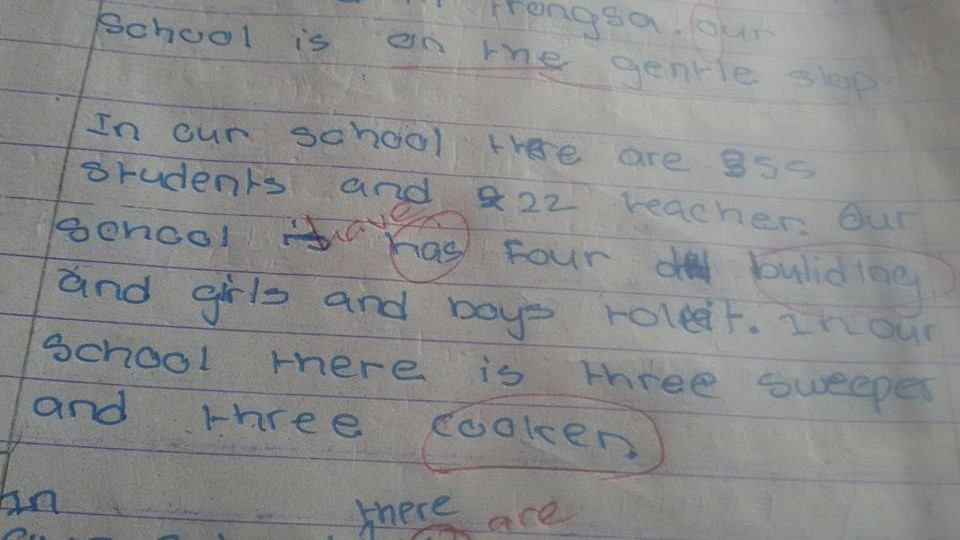 Trongsa. Our
School is on the gentle slop.
In our school there are 355
students and 22 teacher. Our
school have has Four buliding
and girls and boys roleit. In our
school there is three sweeper
and three cooker.
In there are